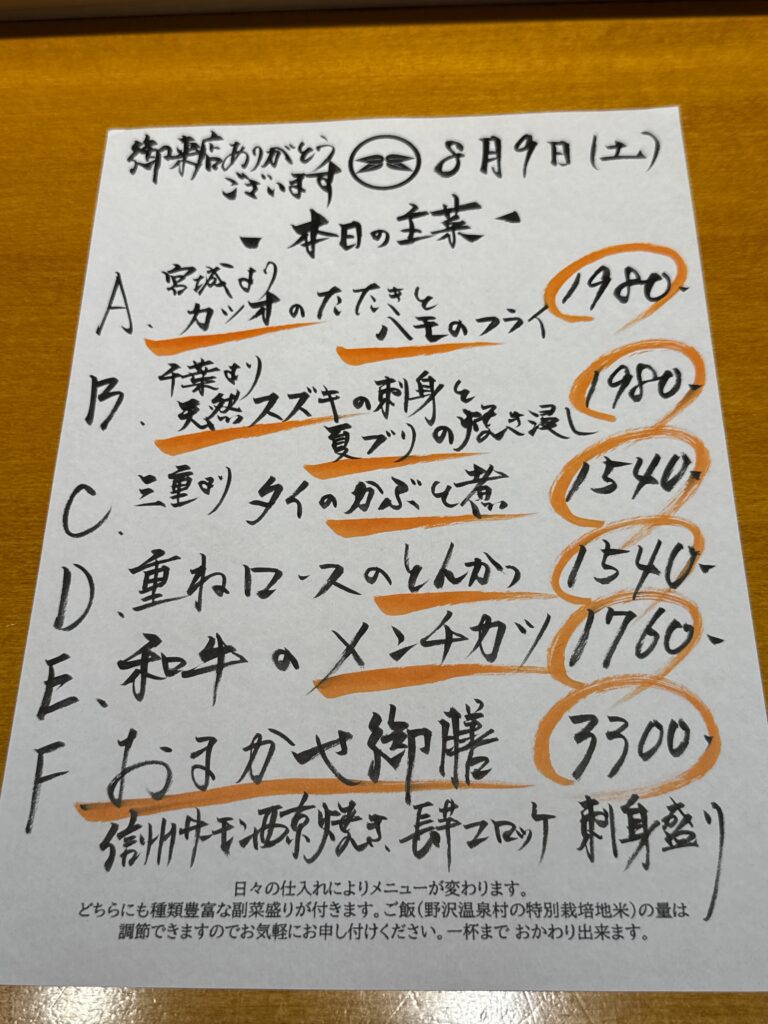 御来店ありがとう
ございます
8月9日(土)
- 本日の主菜 -
A. 宮城より
カツオのたたきと
ハモのフライ 1980-
B. 千葉より
天然スズキの刺身と
夏ブリの焼き浸し 1980-
C. 三重より タイのかぶと煮 1540-
D. 重ねロースのとんかつ 1540-
E. 和牛のメンチカツ 1760-
F. おまかせ御膳 3300-
信州サーモン西京焼き、長芋コロッケ 刺身盛り
日々の仕入れによりメニューが変わります。
どちらにも種類豊富な副菜盛りが付きます。ご飯(野沢温泉村の特別栽培地米)の量は
調節できますのでお気軽にお申し付けください。一杯まで おかわり出来ます。